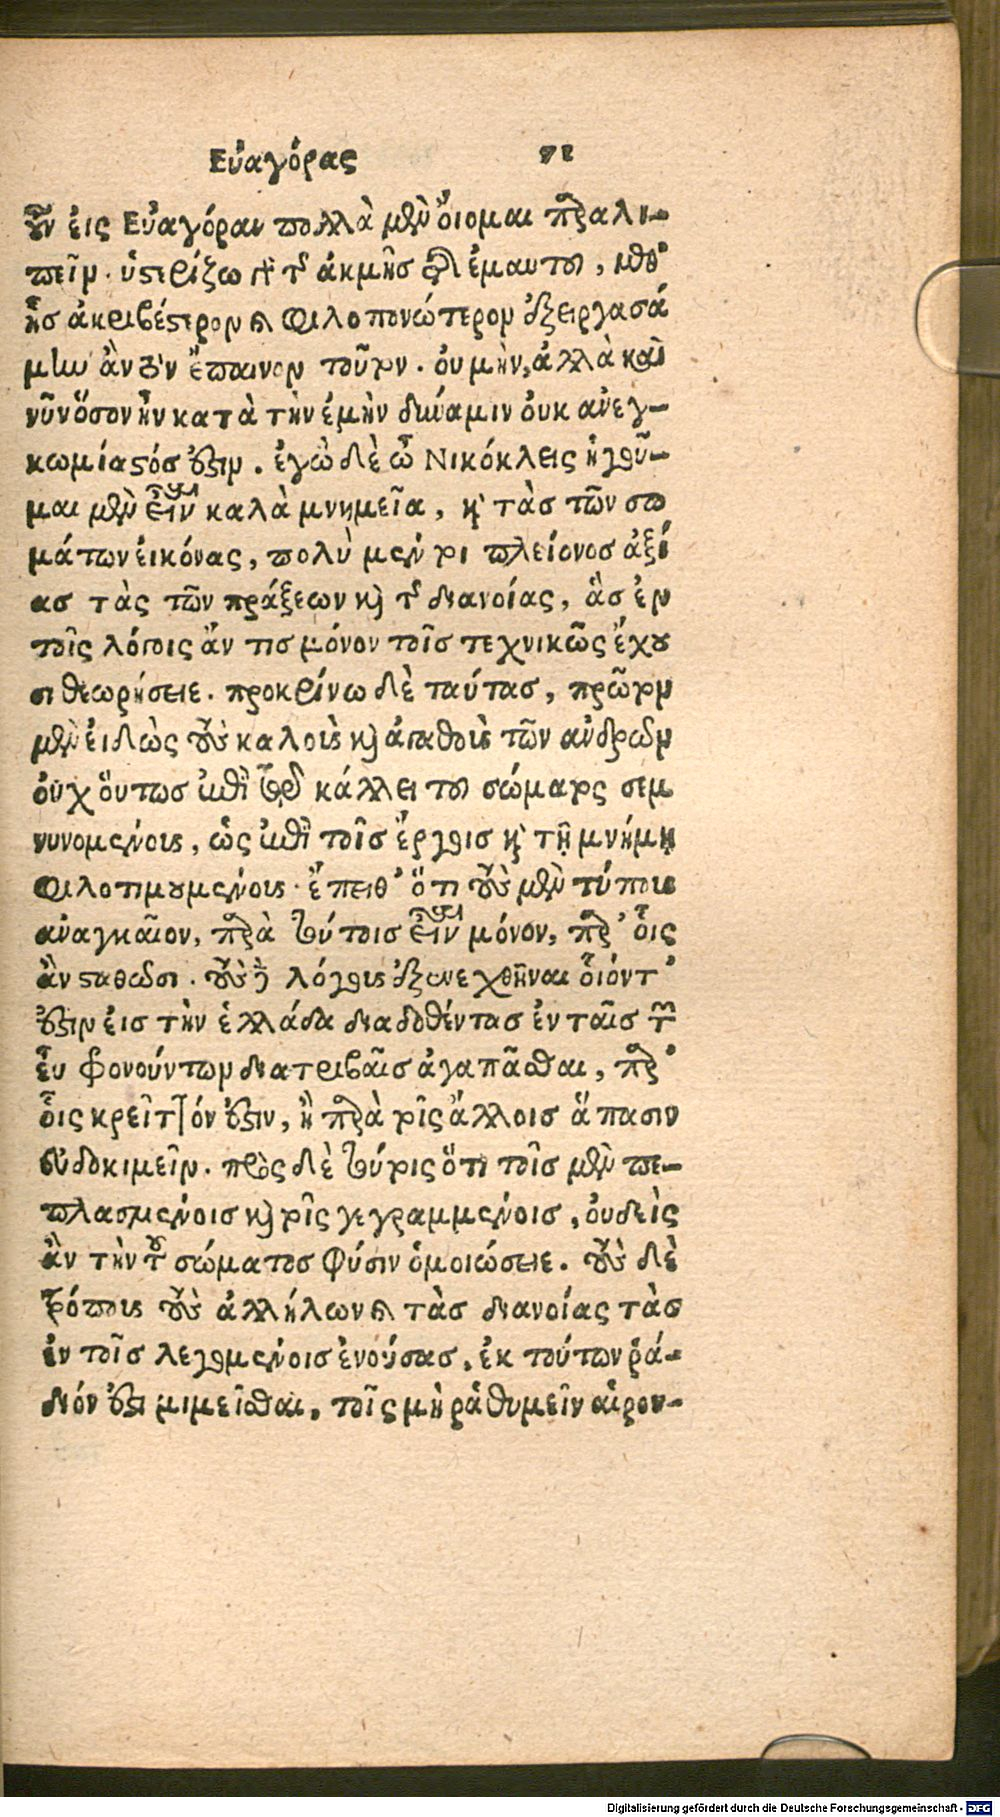 Εὐαγόρας 71
οὖν εἰς Εὐαγόραν πολλὰ μὲν οἴομαι παραλι-
πεῖν. ὑστερίζω γὰρ τῆς ἀκμῆς τῆς ἐμαυτοῦ, μεθ'
ἧς ἀκριβέστερον καὶ φιλοπονώτερον ἐξειργασά
μην ἂν τὸν ἔπαινον τοῦτον. οὐ μὴν, ἀλλὰ καὶ
νῦν ὅσον ἦν κατὰ τὴν ἐμὴν δύναμιν οὐκ ἀνεγ-
κωμίαστός ἐστιν. ἐγὼ δὲ ὦ Νικόκλεις ἡγοῦ-
μαι μὲν εἶναι καλὰ μνημεῖα, καὶ τὰς τῶν σω
μάτων εἰκόνας, πολὺ μέν τοι πλείονος ἀξί
ας τὰς τῶν πράξεων καὶ τῆς διανοίας, ἃς ἐν
τοῖς λόγοις ἄν τις μόνον τοῖς τεχνικῶς ἔχου
σι θεωρήσειε. προκρίνω δὲ ταύτας, πρῶτον
μὲν εἰδὼς τοὺς καλοὺς καὶ ἀγαθοὺς τῶν ἀνδρῶν
οὐχ οὕτως ἐπὶ τῷ κάλλει τοῦ σώματος σεμ
νυνομένους, ὡς ἐπὶ τοῖς ἔργοις καὶ τῇ μνήμῃ
φιλοτιμουμένους. ἔπειθ' ὅτι τοὺς μὲν τύπους
ἀναγκαῖον, παρὰ τούτοις εἶναι μόνον, παρ' οἷς
ἂν σταθῶσι. τοὺς δὲ λόγους ἐξενεχθῆναι οἷόντ'
ἐστιν εἰς τὴν ἑλλάδα διαδοθέντας ἐν ταῖς τῶν
εὖ φρονούντων διατριβαῖς ἀγαπᾶσθαι, παρ'
οἷς κρεῖττόν ἐστιν, ἢ παρὰ τοῖς ἄλλοις ἅπασιν
εὐδοκιμεῖν. πρὸς δὲ τούτοις ὅτι τοῖς μὲν πε-
πλασμένοις καὶ τοῖς γεγραμμένοις, οὐδεὶς
ἂν τὴν τοῦ σώματος φύσιν ὁμοιώσειε. τοὺς δὲ
τρόπους τοὺς ἀλλήλων καὶ τὰς διανοίας τὰς
ἐν τοῖς λεγομένοις ἐνούσας, ἐκ τούτων ῥά-
διόν ἐστι μιμεῖσθαι, τοῖς μὴ ῥᾳθυμεῖν αἱρου-
Digitalisierung gefördert durch die Deutsche Forschungsgemeinschaft - DFG